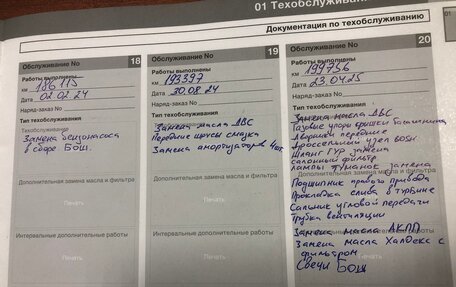 01 Техобслуживани
Документация по техобслуживанию
01
Обслуживание No 18
Работы выполнены
км 186115
Дата 02.02.24
Наряд-заказ No
Тип техобслуживания
Техобслуживание
Замена бензонасоса
в сборе Бош.
Дополнительная замена масла и фильтра
Печать
Интервальные дополнительные работы
Печать
Обслуживание No 19
Работы выполнены
км 193397
Дата 30.08.24
Наряд-заказ No
Тип техобслуживания
Замена масла ДВС
Передние шрусы смазка
Замена амортизаторов 4шт.
Дополнительная замена масла и фильтра
Печать
Интервальные дополнительные работы
Печать
Обслуживание No 20
Работы выполнены
км 199756
Дата 23.04.25
Наряд-заказ No
Тип техобслуживания
Замена масла ДВС
Газовые упоры крышки багажника
Дворники передние
Дроссельный узел BOSH
Шланг ГУР замена
салонный фильтр
лампы туманок замена
Подшипник правого привода
Прокладка слива в турбине
Сальник угловой передачи
Трубка вентиляции
Замена масла АКПП
Замена масла Халдекс с
фильтром
Свечи Бош